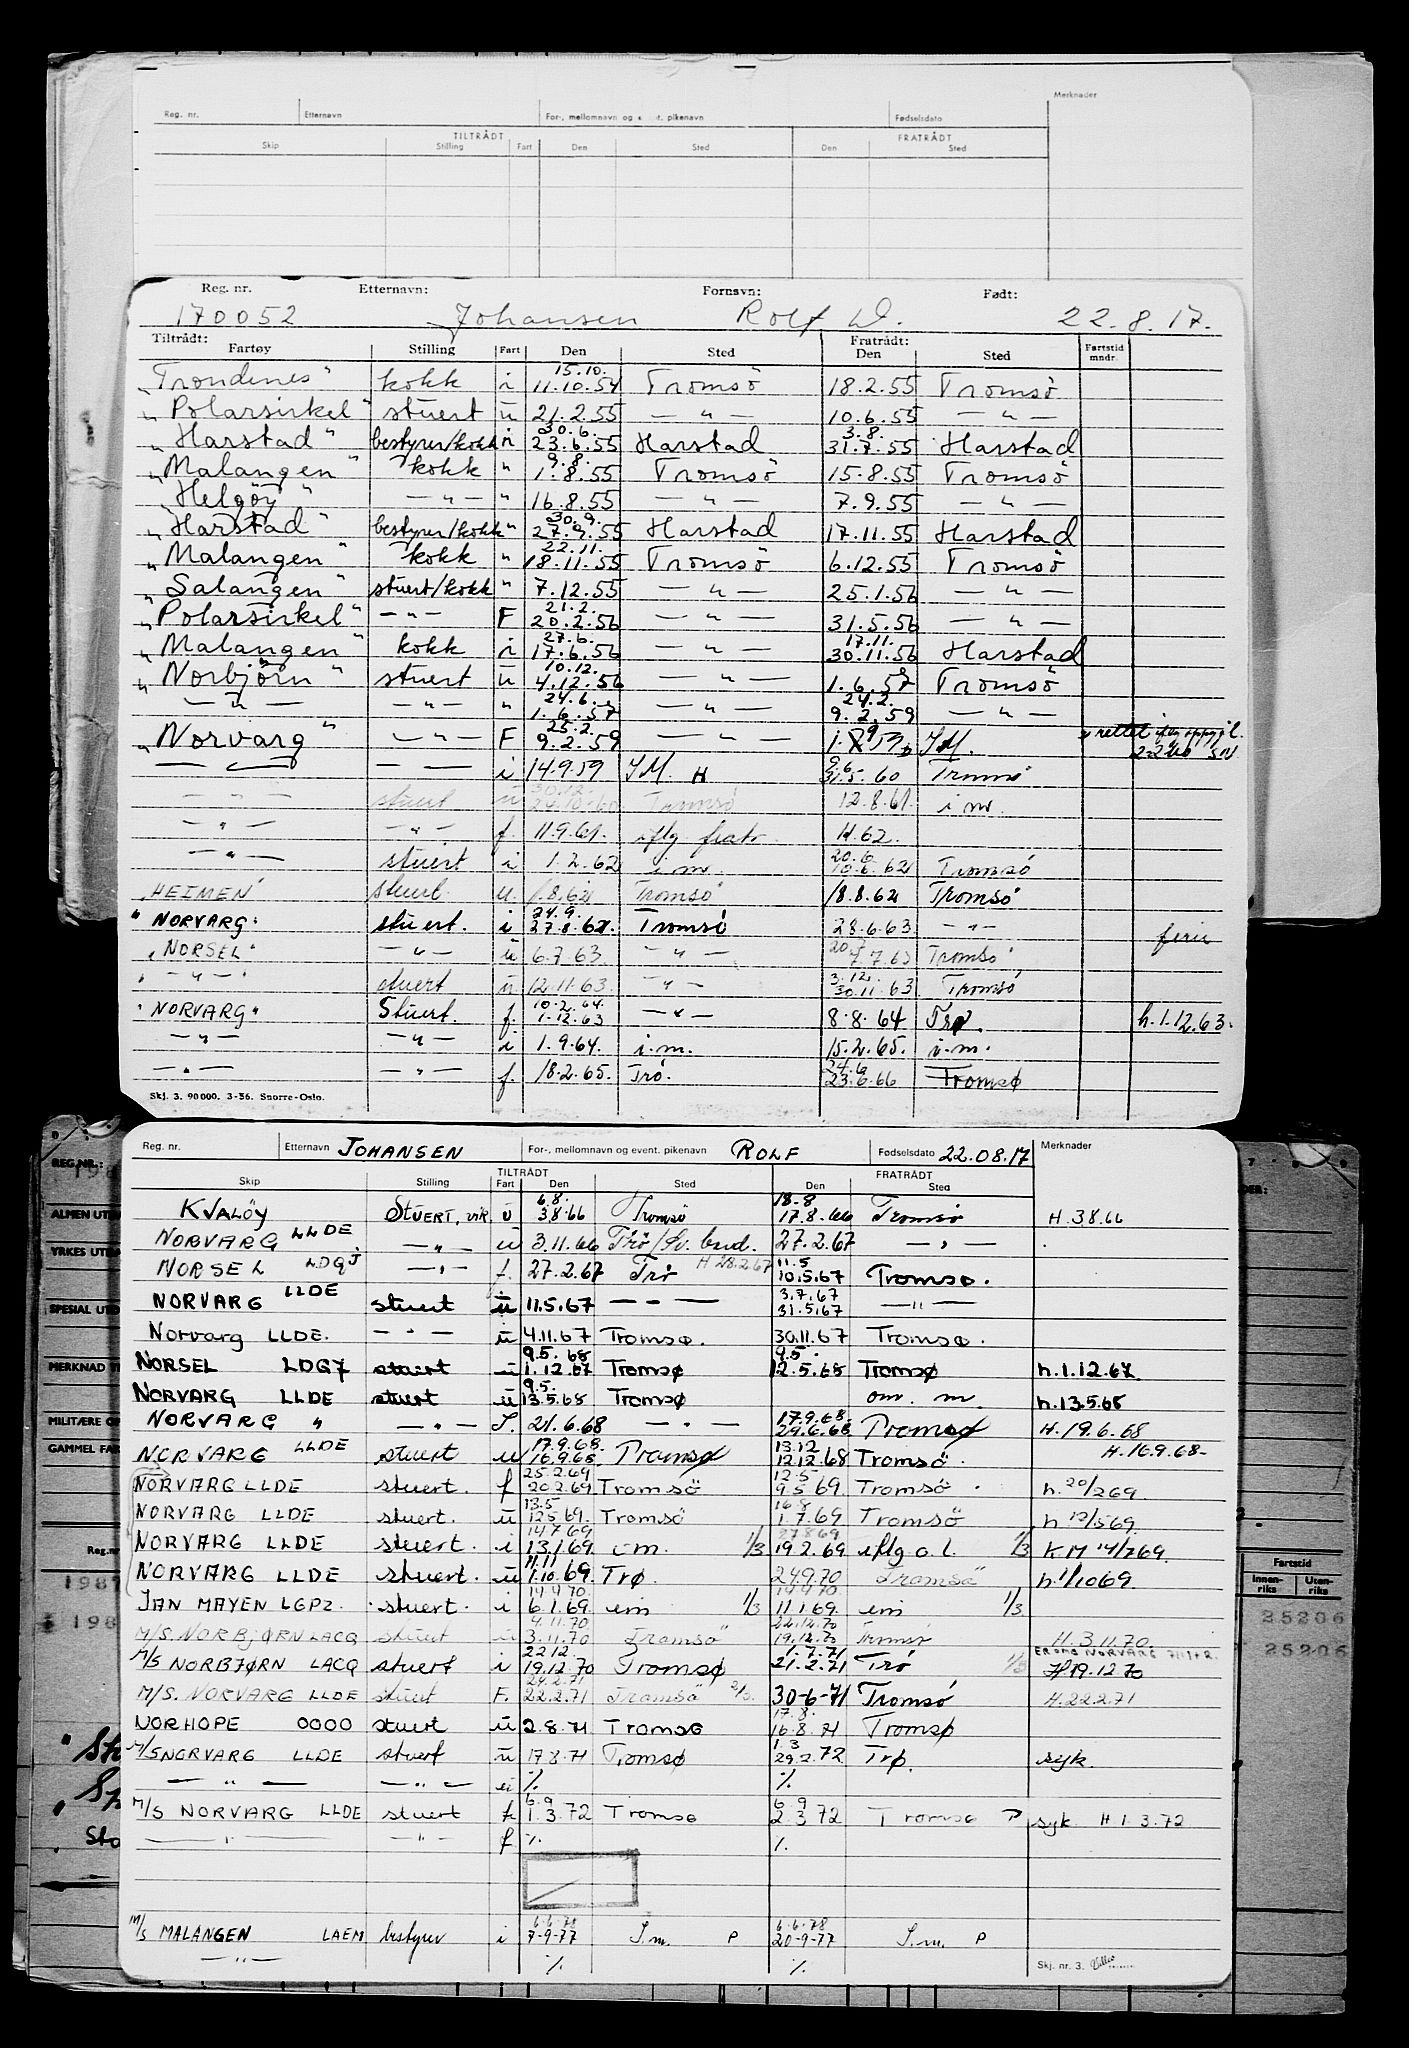 Merknader
Reg. nr. Etternavn For-, mellomnavn og event. pikenavn Fødselsdato
TILTRÅDT FRATRÅDT
Skip Stilling Fart Den Sted Den Sted
Reg. nr. Etternavn: Fornavn: Født:
170052 Johansen Rolf W. 22.8.17.
Tiltrådt: Fratrådt:
Fartøy Stilling Fart Den Sted Den Sted Fartstid mndr.
15.10.
"Trondenes" kokk i 11.10.54 Tromsö 18.2.55 Tromsö
"Polarsirkel" stuert u 21.2.55 — " — 10.6.55 — " —
30.6. 3.8.
"Harstad" bestyrer/kokk i 23.6.55 Harstad 31.7.55 Harstad
9.8.
"Malangen" kokk " 1.8.55 Tromsö 15.8.55 Tromsö
"Helgöy" — " — " 16.8.55 — " — 7.9.55 — " —
30.9.
"Harstad" bestyrer/kokk " 27.9.55 Harstad 17.11.55 Harstad
22.11.
"Malangen" kokk " 18.11.55 Tromsö 6.12.55 Tromsö
"Salangen" stuert/kokk " 7.12.55 — " — 25.1.56 — " —
21.2.
"Polarsirkel" — " — F 20.2.56 — " — 31.5.56 — " —
27.6. 17.11.
"Malangen" kokk i 17.6.56 — " — 30.11.56 Harstad
10.12.
"Norbjörn" stuert u 4.12.56 — " — 1.6.57 Tromsö
24.6. 24.2.
— " — — " — " 1.6.57 — " — 9.2.59 — " —
25.2.
"Norvarg" — " — F 9.2.59 — " — 1.9 59 I M. rettet iflg oppgjl.
— — i 14.9.59 I M. H 31.5.60 Tromsö
30.12.
— " — stuert u 24.10.60 Tromsö 12.8.61. i m.
— " — — " — f. 11.9.61. iflg. fratr. H.62.
20.6
— " — stuert i 1.2.62 i m. 10.6.62 Tromsö
"HEIMEN" stuert. u. 1.8.62 Tromsö 18.8.62 Tromsö
24.9.
"NORVARG" stuert. i 27.8.62. Tromsö 28.6.63. — " — ferie
20.7
"NORSEL" — " — u 6.7.63. — " — 7.7.63 Tromsö
3.12.
" — " — " stuert u 12.11.63. — " — 30.11.63 Tromsö
10.2.64.
"NORVARG" Stuert. f. 1.12.63 — " — 8.8.64 Trø. h.1.12.63.
— " — — " — i 1.9.64. i.m. 15.2.65. i.m.
24.6
— " — — " — f. 18.2.65. Trö. 23.6.66 Tromsø
Skj. 3. 90000. 3-56. Snorre-Oslo.
Reg. nr. Etternavn JOHANSEN For-, mellomnavn og event. pikenavn ROLF Fødselsdato 22.08.17 Merknader
TILTRÅDT FRATRÅDT
Skip Stilling Fart Den Sted Den Sted
6.8. 18.8
KVALÖY STUERT, vik. u 3.8.66 Tromsö 17.8.66 Tromsö H.3.8.66
NORVARG LLDE — " — u 3.11.66 Trö/ 27.2.67 — " —
11.5
NORSEL LDQJ — " — f. 27.2.67 Trö H 28.2.67 10.5.67 Tromsø.
3.7.67
NORVARG LLDE stuert u 11.5.67 — " — 31.5.67 — " —
Norvarg LLDE. — " — u 4.11.67 Tromsø. 30.11.67 Tromsø.
9.5.68 9.5.
NORSEL LDG7 stuert u 1.12.67 Tromsø 12.5.68 Tromsø h.1.12.67
9.5.
NORVARG LLDE stuert u 13.5.68 Tromsø om. m. h.13.5.68
17.9.68.
NORVARG " — " — I. 21.6.68 — " — 29.6.68 Tromsø H.19.6.68
17.9.68. 13.12 H.16.9.68-
NORVARG LLDE stuert u 16.9.68. Tromsø 12.12.68 Tromsö.
25.2.69 12.5
NORVARG LLDE stuert. f 20.2.69 Tromsö 9.5.69 Tromsö. h.20/2 69.
13.5 16.8
NORVARG LLDE stuert. u 12.5.69. Tromsö 1.7.69 Tromsö h 12/5 69.
14.7.69 27.8.69
NORVARG LLDE stuert. i 13.1.69. i m. 1/3 19.2.69 iflg o.l. 1/3 KM 14/7 69.
11.11
NORVARG LLDE stuert. u 1.10.69. Trø. 24.9.70 Tromsö h. 1/10 69.
14.4.70 14.4.70
JAN MAYEN LGPZ. stuert. i 6.1.69. im 1/3 11.1.69. im 1/3.
4.11.70 22.12.70
M/S. NORBJØRN LACQ stuert u 3.11.70 Tromsö 19.12.70 Tromsö H.3.11.70.
22.12. 1.7.71
M/S NORBJØRN LACQ stuert i 19.12.70 Tromsø 21.2.71 Trö 1/3 H 19.12.70
24.2.71
M/S. NORVARG LLDE stuert F. 22.2.71 Tromsö 2/3. 30-6-71 Tromsö H.22.2.71
17.8.
NORHOPE 0000 stuert u 2.8.71 Tromsø 16.8.71 Tromsø
1.3
M/S NORVARG LLDE stuert u 17.8.71 Tromsø 29.2.72 Trø. syk.
— " — — " — ei % %
6.9 6.9
M/S NORVARG LLDE stuert f 1.3.72 Tromsø 2.3.72 Tromsø P syk H 1.3.72
— " — — " — f % %
6.6.78 6.6.78
M/S MALANGEN LAEM bestyrer i 7-9-77 I.m. P 20-9-77 I.m. P
— " — % %
Skj. nr. 3.
REG.NR.:
YRKES UT
MERKNAD T
GAMMEL FA
Reg.nr
Fartstid
Innenriks Utenriks
25206
25206